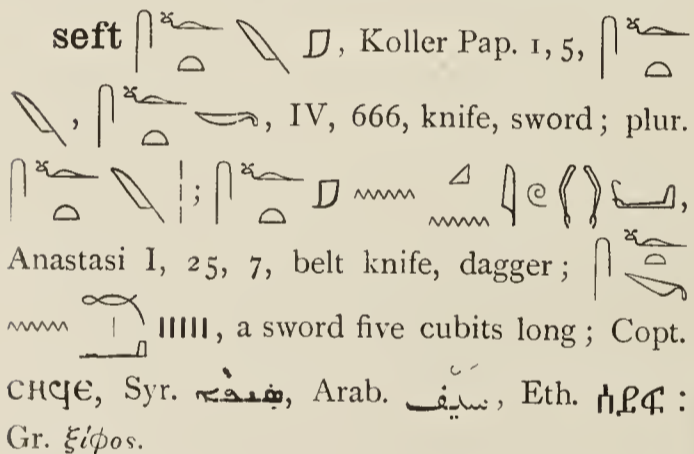 seft 𓋴𓆑𓏏𓌪𓈔, Koller Pap. 1, 5, 𓋴𓆑𓏏
𓌪, 𓋴𓆑𓏏, IV, 666, knife, sword; plur.
𓋴𓆑𓏏𓌪; 𓋴𓆑𓏏𓈔𓈖𓈎𓈖𓇋𓏲,
Anastasi I, 25, 7, belt knife, dagger; 𓋴𓆑𓏏
𓈖, a sword five cubits long; Copt.
ⲥⲏϥⲉ, Syr. ܣܝܦܐ, Arab. سيف, Eth. ሰይፍ፡
Gr. ξίφος.